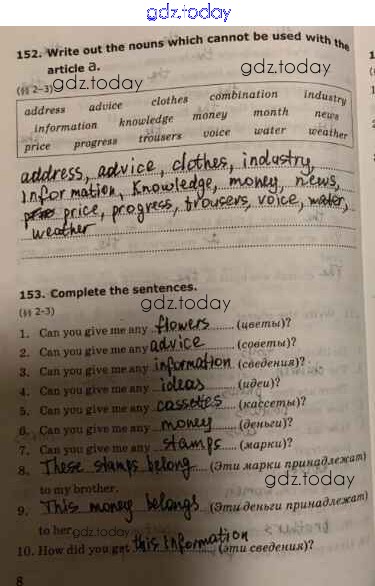 gdz.today
152. Write out the nouns which cannot be used with the
article a.
(§§ 2-3) gdz.today
gdz.today
address advice clothes combination industry
information knowledge money month news
price progress trousers voice water weather
address, advice, clothes, industry,
information, knowledge, money, news,
price, progress, trousers, voice, water,
weather
153. Complete the sentences.
gdz.today
(§§ 2-3)
1. Can you give me any flowers (цветы)?
2. Can you give me any advice (советы)?
3. Can you give me any information (сведения)?
4. Can you give me any ideas (идеи)?
5. Can you give me any cassetes (кассеты)?
6. Can you give me any money (деньги)?
7. Can you give me any stamps (марки)?
8. These stamps belong (Эти марки принадлежат)
to my brother.
gdz.today
9. This money belongs (Эти деньги принадлежат)
to her gdz.today
10. How did you get this information (эти сведения)?
8